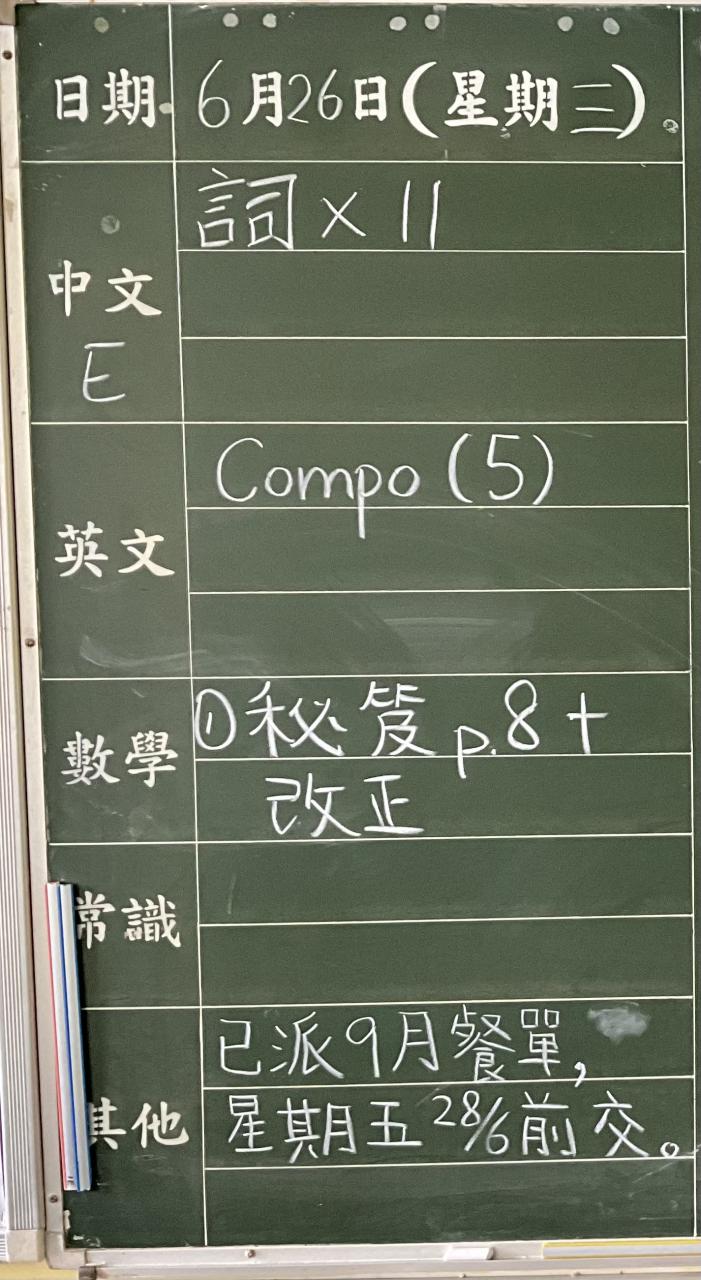 日期 6月26日(星期三)
詞 × 11
中文
E
Compo (5)
英文
①秘笈 p.8 +
數學
改正
常識
已派9月餐單,
其他 星期五 28/6 前交。